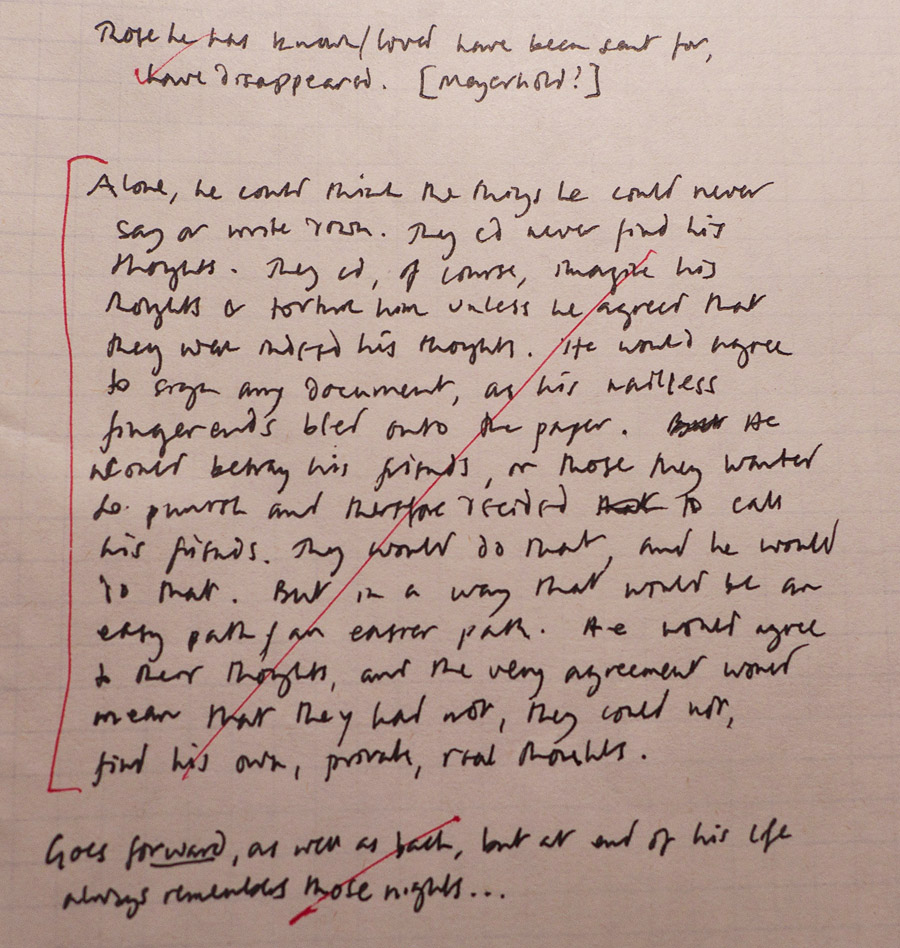 Those he has known/loved have been sent for,
have disappeared. [Meyerhold?]
Alone, he could think the things he could never
say or write down. They cd never find his
thoughts. They cd, of course, imagine his
thoughts & torture him unless he agreed that
they were indeed his thoughts. He would agree
to sign any document, as his nailless
fingerends bled onto the paper. But He
would betray his friends, or those they wanted
to punish and therefore decided that to call
his friends. They would do that, and he would
do that. But in a way that would be an
easy path/an easier path. He would agree
to their thoughts, and the very agreement would
mean that they had not, they could not,
find his own, private, real thoughts.
Goes forward, as well as back, but at end of his life
always remembers those nights...